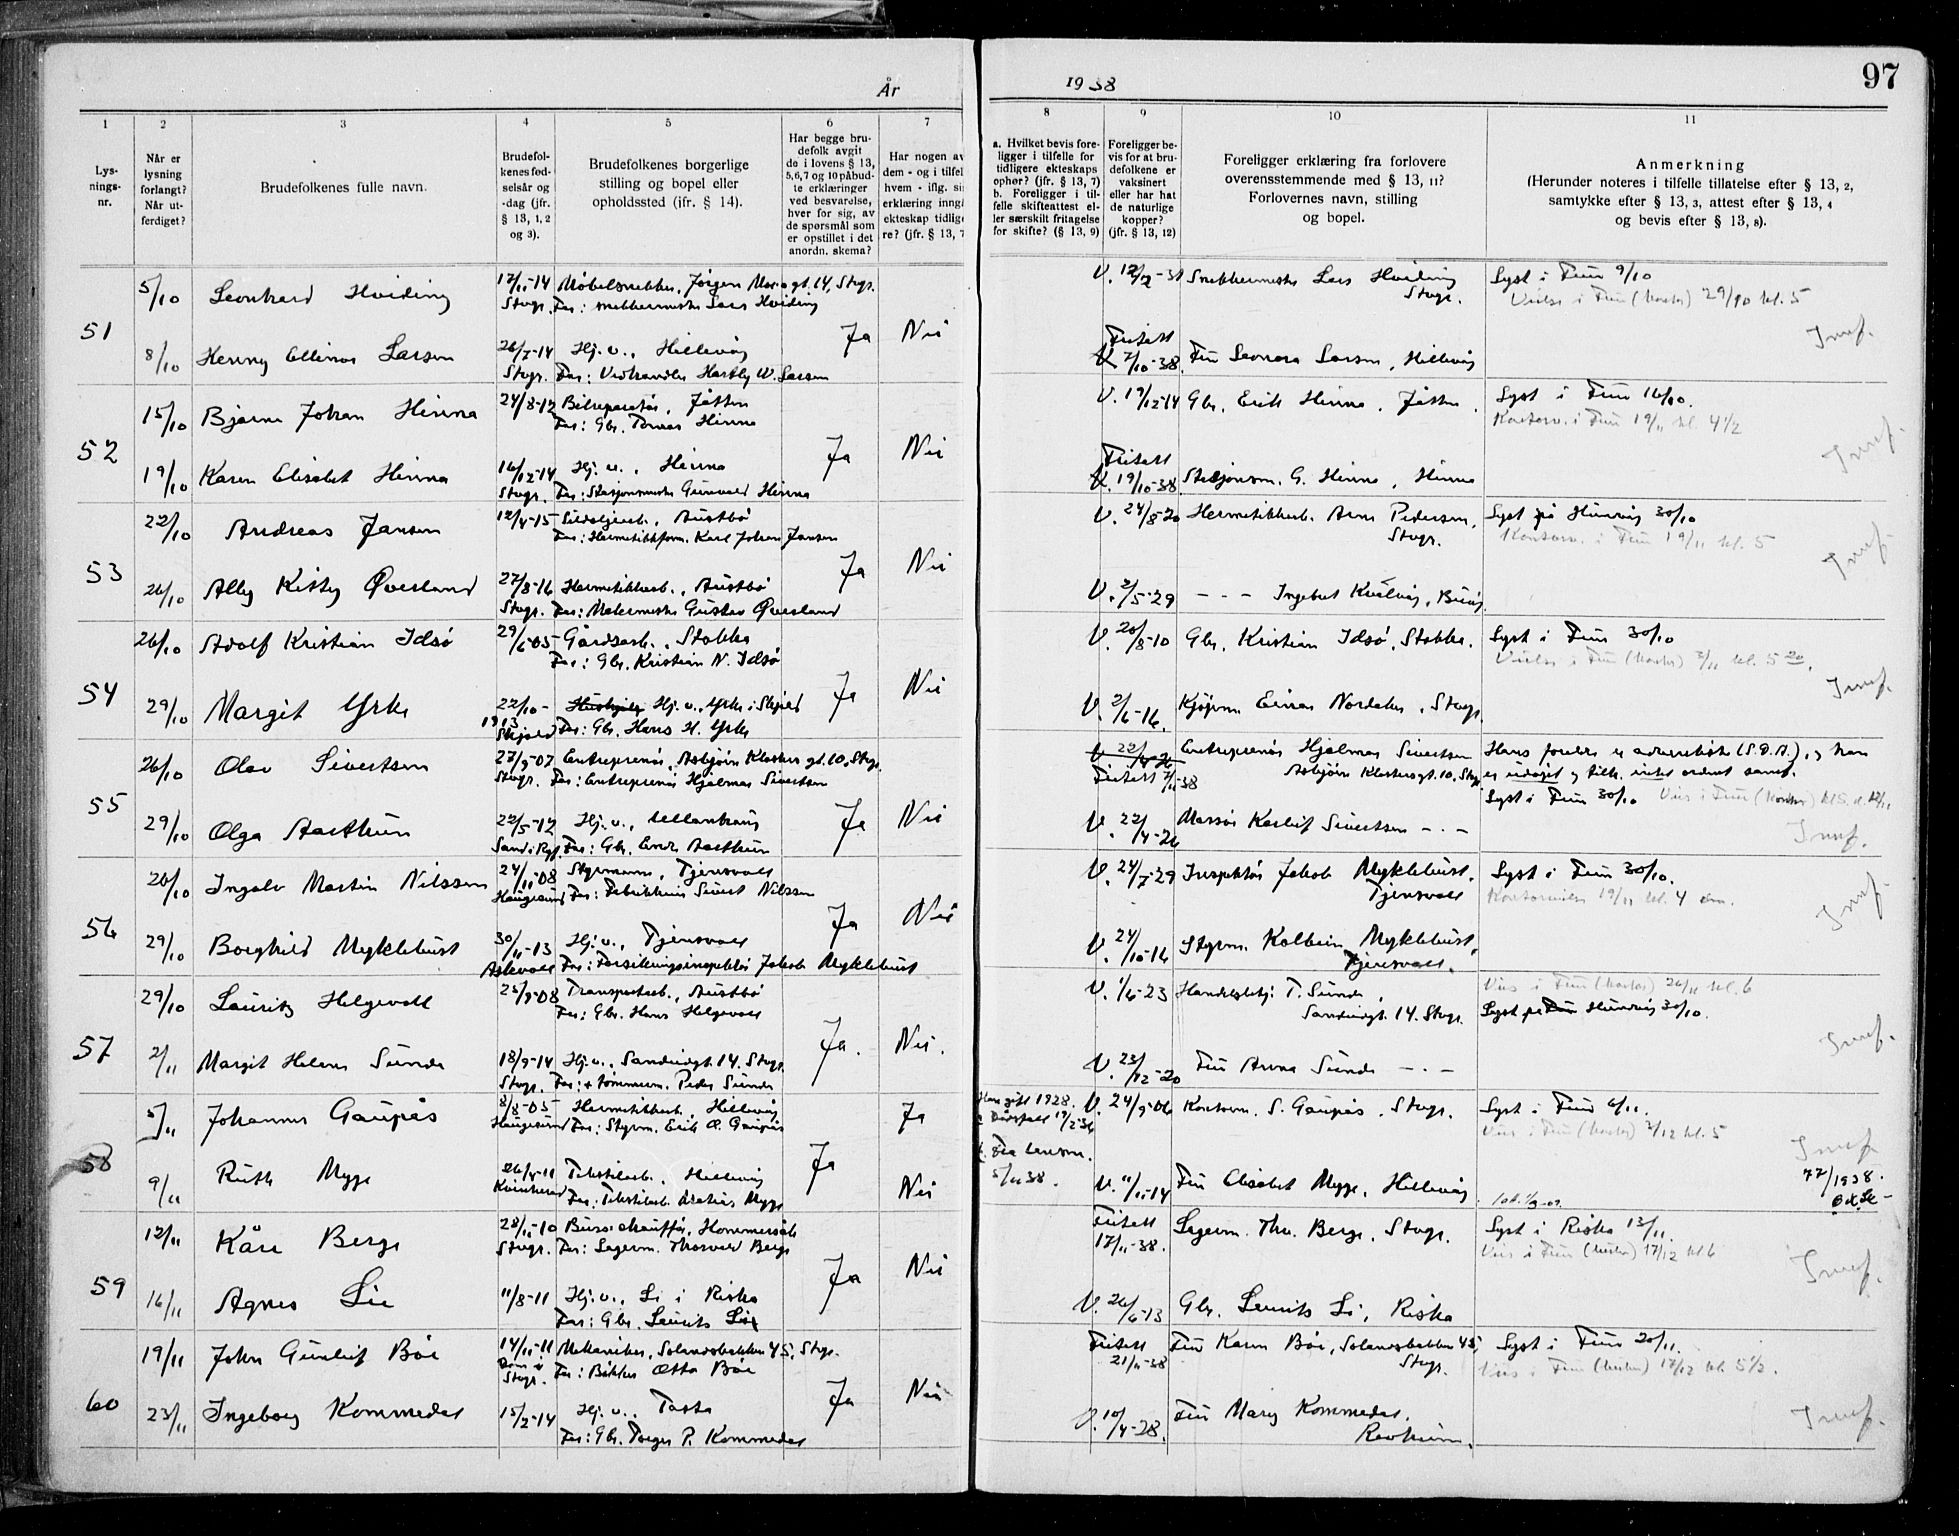 År 1938
97
1
2
3
4
5
6
7
8
9
10
11
Lys-
nings-
nr.
Når er
lysning
forlangt?
Når ut-
ferdiget?
Brudefolkenes fulle navn.
Brudefol-
kenes fød-
selsår og
-dag (jfr.
§ 13, 1, 2
og 3).
Brudefolkenes borgerlige
stilling og bopel eller
opholdssted (jfr. § 14).
Har begge bru-
defolk avgit
de i lovens § 13,
5,6,7 og 10 påbud-
te erklæringer
ved besvarelse,
hver for sig, av
de spørsmål som
er opstillet i det
anordn. skema?
Har nogen av
dem - og i tilfel
hvem - iflg. si
erklæring inngå
ekteskap tidlige
re? (jfr. § 13, 7
a. Hvilket bevis fore-
ligger i tilfelle for
tidligere ekteskaps
ophør? (jfr. § 13, 7)
b. Foreligger i til-
felle skifteattest el-
ler særskilt fritagelse
for skifte? (§ 13, 9)
Foreligger be-
vis for at bru-
defolkene er
vaksinert
eller har hat
de naturlige
kopper?
(jfr. § 13, 12)
Foreligger erklæring fra forlovere
overensstemmende med § 13, 11?
Forlovernes navn, stilling
og bopel.
Anmerkning
(Herunder noteres i tilfelle tillatelse efter § 13, 2,
samtykke efter § 13, 3, attest efter § 13, 4
og bevis efter § 13, 8).
51
5/10 Leonhard Hviding 17/11-14 Møbelsnekker, Jörgen Moes gt. 14, Stvgr. Snekkermester Lars Hviding Lyst i Frue 9/10
Stvgr. Far: snekkermester Lars Hviding Stvgr. Vielse i Frue (kontor) 29/10 kl. 5
Ja Nei
8/10 Henny Ellinor Larsen 26/7-14 Hj. v., Hillevåg Fritatt 7/10-38. Fru Leonora Larsen, Hillevåg
Stvgr. Far: Vedhandler Hartly W. Larsen
52
15/10 Bjarne Johan Hinna 24/8-12 Bilreparatör, Jåtten V. 19/12-14 Gbr. Erik Hinna, Jåtten. Lyst i Frue 16/10.
Far: Gbr. Hinna Kontorv. i Frue 19/11 kl. 4 1/2
Ja Nei
19/10 Karen Elisabet Hinna 16/12-14 Hj. v., Hinna Fritatt 19/10-38. Stasjonsm. G. Hinna, Hinna
Stvgr. Far: Stasjonsmester Gunvald Hinna
53
22/10 Andreas Jansen 12/4-15 Austbö V. 24/8-20 Hermetikkarb. Arne Pedersen, Lyst på Hundvåg 30/10
Far: Hermetikkform. Karl Johan Jansen Stvgr. Kontorv. i Frue 19/11 kl. 5
Ja Nei
26/10 Ally Kitty Øvesland 27/8-16 Hermetikkarb., Austbö V. 2/5-29 - - - Ingebret Kvalvåg, Buöy
Stvgr. Far: Malermester Gustav Øvesland
54
26/10 Adolf Kristian Idsö 29/6-05 Gårdsarb., Stokka V. 20/8-10 Gbr. Kristian Idsö, Stokka. Lyst i Frue 30/10
Far: Gbr. Kristian N. Idsö Vielse i Frue (kontor) kl. 5 20.
Ja Nei
29/10 Margit Yrke 22/10- Hj. v., Yrke i Skjold V. 2/6-16. Einar Nordaker, Stvgr.
1913 Skjold Far: Gbr. Hans H. Yrke
55
26/10 Olav Sivertsen 27/9-07 Entreprenör, Asbjörn Klosters gt. 10, Stvgr. Entreprenör Hjalmar Sivertsen Hans foreldre er adventister (S.D.A.), og han
Stvgr. Far: Entreprenör Hjalmar Sivertsen Fritatt -38 Asbjörn Klosters gt. 10, Stvgr. er udöpt og tilh. intet ordnet samf.
Lyst i Frue 30/10
Ja Nei
29/10 Olga Aarthun 22/5-12 Hj. v., V. 22/4-26 Sivertsen - . -
Sand i Ryf. Far: Gbr. Aarthun
56
26/10 Ingolv Martin Nilssen 24/11-08 Styrmann, Tjensvoll V. 24/7-29 Inspektör Jakob Myklebust. Lyst i Frue 30/10.
Haugesund Far: Sivert Nilssen Tjensvoll Kontorvielse 19/11 kl. 4 em.
Ja Nei
29/10 Borghild Myklebust 30/11-13 Hj. v., Tjensvoll V. 24/10-16 Styrm. Kolbein Myklebust,
Askvoll Far: Forsikringsinspektör Jakob Myklebust Tjensvoll.
57
29/10 Lauritz Helgevoll 25/9-08 Transportarb., Austbö V. 1/6-23 T. Sunde, Vies i Frue (kontor) 26/11 kl. 6
Far: Gbr. Hans Helgevoll Sandvigt. 14. Stvgr. Lyst på Hundvåg 30/10.
Ja. Nei.
2/11 Margit Helene Sunde 18/9-14 Hj. v., Sandvigt. 14. Stvgr. V. 23/12-20 Fru Anna Sunde - . -
Stvgr. Far: + tömmerm. Peder Sunde
58
5/11 Johannes Gaupås 8/8-05 Hermetikkarb., Hillevåg Ja Han gift 1928. V. 24/9-06 Kontorm. S. Gaupås, Stvgr. Lyst i Frue 6/11.
Haugesund Far: Styrm. Erik O. Gaupås Vies i Frue (kontor) 3/12 kl. 5
Ja
9/11 Ruth Mygge 26/4-11 Tekstilarb., Hillevåg Nei 5/11 38. V. 11/11-14 Fru Elisabet Mygge, Hillevåg 77/1938.
Kvinherad Far: Tekstilarb. Mygge
59
12/11 Kåre Berge 28/11-10 Busschauffør, Hommersåk Fritatt 17/11-38. Lagerm. Thv. Berge, Stvgr. Lyst i Riska 13/11.
Stvgr. Far: Lagerm. Thorvald Berge Vies i Frue (kontor) 17/12 kl 6
Ja Nei
16/11 Agnes Lie 11/8-11 Hj. v., Li i Riska V. 26/6-13 Gbr. Laurits Li, Riska
Far: Gbr. Laurits Li
60
19/11 John Gunleif Böe 14/11-11 Mekaniker, Solandsbakken 45, Stvgr. Fritatt 21/11-38 Fru Karen Böe, Solandsbakken 45, Lyst i Frue 20/11.
Stvgr. Far: Otto Böe Stvgr. Vies i Frue (kontor) 17/12 kl 5 1/2.
Ja Nei
23/11 Ingeborg Kommedal 15/2-14 Hj. v., Tasta V. 10/4-28. Fru Mary Kommedal,
Far: Gbr. Torger P. Kommedal Revheim.